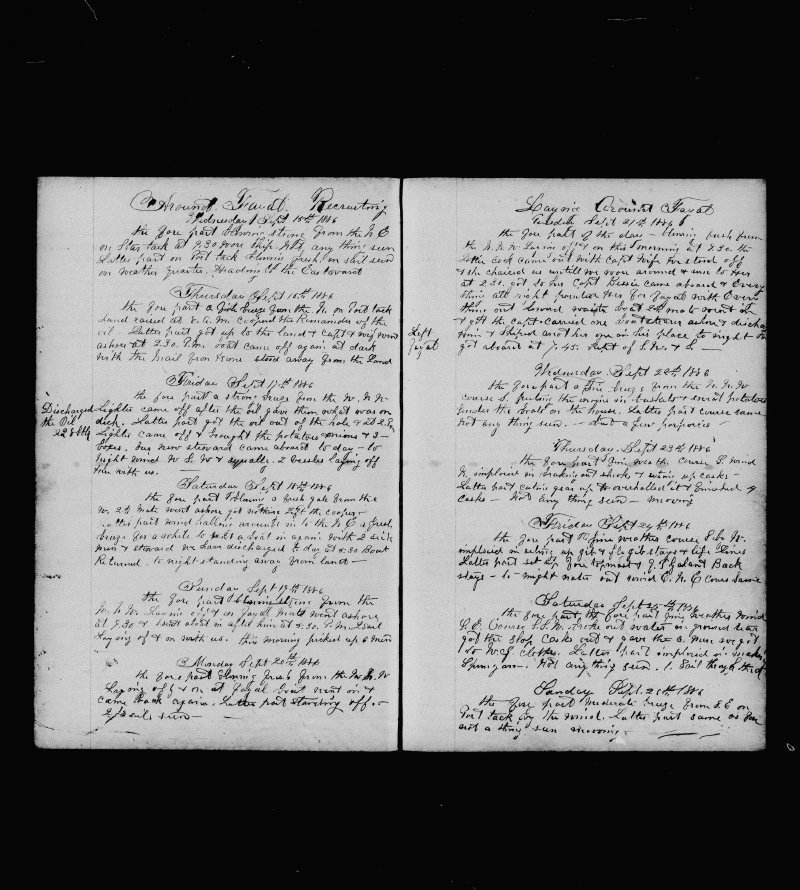 Around Fayal. Recruiting
Wednesday Sept 15th 1886
the fore part blowing strong from the N E
on Star tack at 7.30 wore Ship. Not any thing seen
Latter part on Port tack blowing fresh on sail seen
on weather quarter. Heading to the Eastward
Thursday Sept 16th 1886
the fore part a fresh breeze from the N. on Port tack
Land raised at 8 A.M. coopered the remainder of the
oil - Latter part got up to the land & Capt & wife went
ashore at 2.30. P.M. boat came off again at dark
with the mail from home. stood away from the Land
Friday Sept 17th 1886
the fore part a strong breeze from the W. N. W.
Discharged
the Oil
228 bbls
Lighter came off after the oil gave them what was on
deck. Latter part got the oil out of the hole & at 2. P.M
Lighter came off & brought the potatoes onions & 3
boxes. Our new steward came aboard to day - to
night wind W S W & squally. 2 vessels laying off
& on with us.
Saturday Sept 18th 1886
the fore part blowing a fresh gale from the
W. 2d mate went ashore got nothing left the cooper
Latter part wind hauling around in to the N E a fresh
breeze for a while to sent a boat in again with 2 sick
men & steward we have discharged to day at 4.30 Boat
Returned. to night standing away from land
Sunday Sept 19th 1886
the fore part blowing strong from the
N. N. W. Laying off & on Fayal Mate went ashore
at 7.30 & sent boat in after him at 4.30. P.M. 1 Sail
Laying off & on with us. this morning picked up 6 men
Monday Sept 20th 1886
the fore part blowing fresh from the N. N. W
Laying off & on at Fayal boat went in &
came back again. Latter part standing off.
2 Sails seen
Laying Around Fayal
Tuesday Sept 21st 1886
the fore part of the day blowing fresh from
the N. N. W Laying off & on this morning at 7.30. the
Latter took came out with Capt Wife he stood off
& she chaised us untill we wore around & run to her
at 2.30. got to her Capt Bessie came aboard & Every
thing all right
thing out lowerd waist boat 2d mate went in
& got the Capt. Carried one Boatsteerer ashore & discharged
him & shiped another one in his place to night
got aboard at 7.45. Kept of S. W. & S.
Left
Fayal
Wednesday, Sept 22th 1886
the fore part a fine breeze from the N. N. W
course S. puting the onions in baskets & sorted potatoes
under the boats on the house. Latter part course same
Not any thing seen. - Saw a few porpoises
Thursday, Sept 23th 1886
the fore part fine weather course S. wind
N. imployed in breaking out shooks & seting up casks -
Latter part cating gear up & overhalled it & finished
casks - Not any thing seen - moving
Friday Sept 24th 1886
the fore part fine weather course S by W.
imployed in seting up gib & flying gib stays & life Lines
Latter part set up fore topmast & T. Galant Back
stays - to - night water out wind E. N. E Course Same
Saturday Sept 25th 1886
the fore part the fore part fine weather wind
S. E. Course S. S. W. broke out water in ground tear
got the slop casks out & gave the 6 men we got
to W.I. clothes. Latter part imployed in making
Spunyarn. Not any thing seen. 1. Sail
Sunday Sept. 26th 1886
the fore part moderate breeze from S. E on
Port tack by the wind. Latter part same as fore
not a thing seen moving.